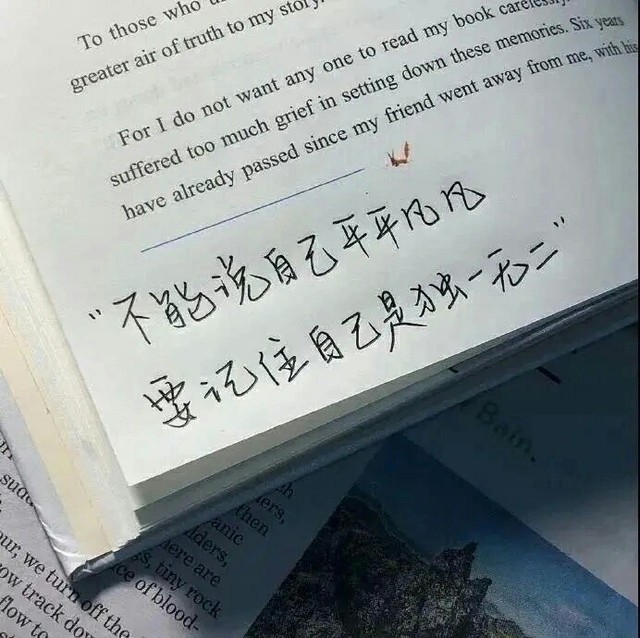 To those who
greater air of truth to my story.
For I do not want any one to read my book carelessly.
suffered too much grief in setting down these memories. Six years
have already passed since my friend went away from me, with his
"不能说自己平平凡凡
要记住自己是独一无二"
Bain.
then
anic
here are
tiny rock
ce of blood-
our, we turn off the
ow track down
flow to